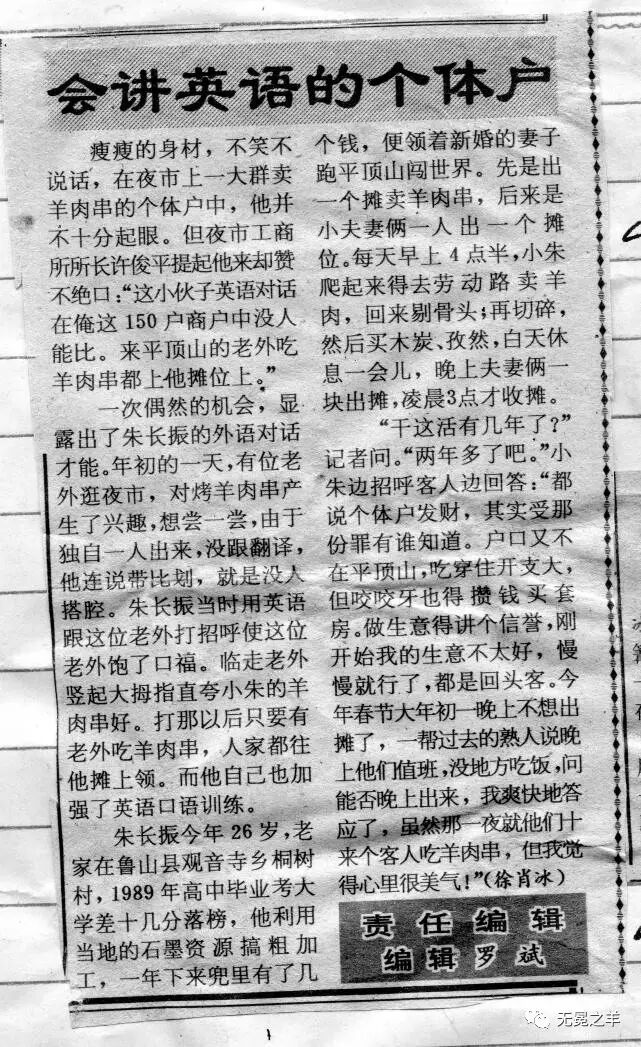 会讲英语的个体户
瘦瘦的身材，不笑不
说话，在夜市上一大群卖
羊肉串的个体户中，他并
不十分起眼。但夜市工商
所所长许俊平提起他来却赞
不绝口：“这小伙子英语对话
在俺这150户商户中没人
能比。来平顶山的老外吃
羊肉串都上他摊位上。”
一次偶然的机会，显
露出了朱长振的外语对话
才能。年初的一天，有位老
外逛夜市，对烤羊肉串产
生了兴趣，想尝一尝，由于
独自一人出来，没跟翻译，
他连说带比划，就是没人
搭腔。朱长振当时用英语
跟这位老外打招呼使这位
老外饱了口福。临走老外
竖起大拇指直夸小朱的羊
肉串好。打那以后只要有
老外吃羊肉串，人家都往
他摊上领。而他自己也加
强了英语口语训练。
朱长振今年26岁，老
家在鲁山县观音寺乡桐树
村，1989年高中毕业考大
学差十几分落榜，他利用
当地的石墨资源搞粗加
工，一年下来兜里有了几
个钱，便领着新婚的妻子
跑平顶山闯世界。先是出
一个摊卖羊肉串，后来是
小夫妻俩一人出一个摊
位。每天早上4点半，小朱
爬起来得去劳动路卖羊
肉，回来剔骨头；再切碎，
然后买木炭、孜然，白天休
息一会儿，晚上夫妻俩一
块出摊，凌晨3点才收摊。
“干这活有几年了？”
记者问。“两年多了吧。”小
朱边招呼客人边回答：“都
说个体户发财，其实受那
份罪有谁知道。户口又不
在平顶山，吃穿住开支大，
但咬咬牙也得攒钱买套
房。做生意得讲个信誉，刚
开始我的生意不太好，慢
慢就行了，都是回头客。今
年春节大年初一晚上不想出
摊了，一帮过去的熟人说晚
上他们值班，没地方吃饭，问
能否晚上出来，我爽快地答
应了，虽然那一夜就他们十
来个客人吃羊肉串，但我觉
得心里很美气！”（徐肖冰）
责任编辑
编辑 罗斌
无冕之羊